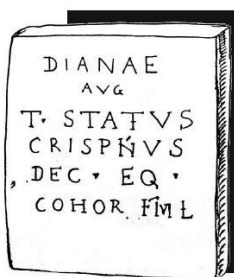 DIANAE
AVG
T. STATVS
CRISPINVS
DEC • EQ •
COHOR FML